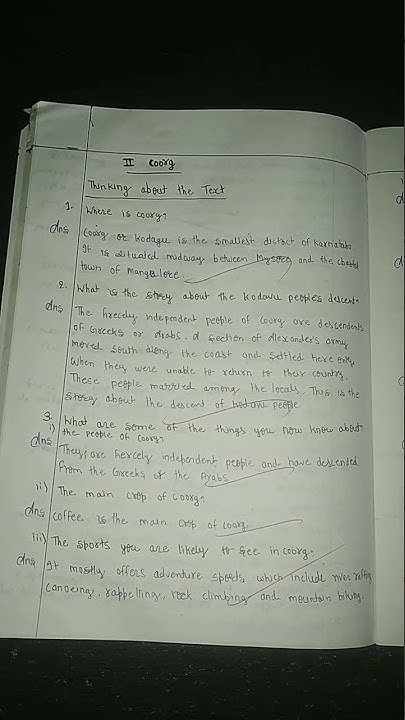 II Coorg
Thinking about the Text
1. Where is coorg?
Ans Coorg or Kodagu is the smallest district of Karnataka
It is situated midway between Mysore and the coastal
town of mangalore.
2. What is the story about the Kodavu people's descent.
Ans The fircely independent people of Coorg are descendents
of Greeks or Arabs. A section of Alexander's army
moved south along the coast and settled here only
when they were unable to return to their country.
These people married among the locals. This is the
story about the descent of kodavu people.
3. What are some of the things you now know about
i) the people of Coorg?
Ans They are fiercely independent people and have descended
from the Greeks of the Arabs.
ii) The main crop of Coorg?
Ans coffee is the main crop of coorg.
iii) The sports you are likely to see in coorg.
Ans It mostly offers adventure sports which include river rafting
canoeing, rappelling, rock climbing and mountain biking.